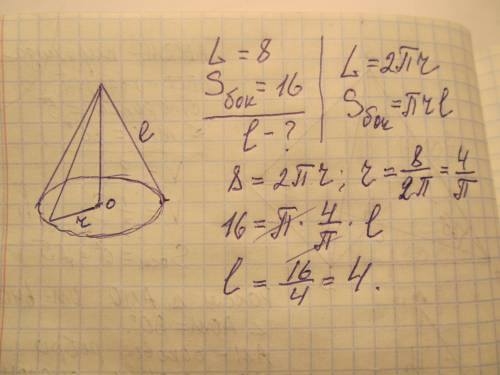 L = 8
Sбок = 16
l - ?
L = 2πr
Sбок = πrl
8 = 2πr; r = 8/2π = 4/π
16 = π · 4/π · l
l = 16/4 = 4.
l
r
o